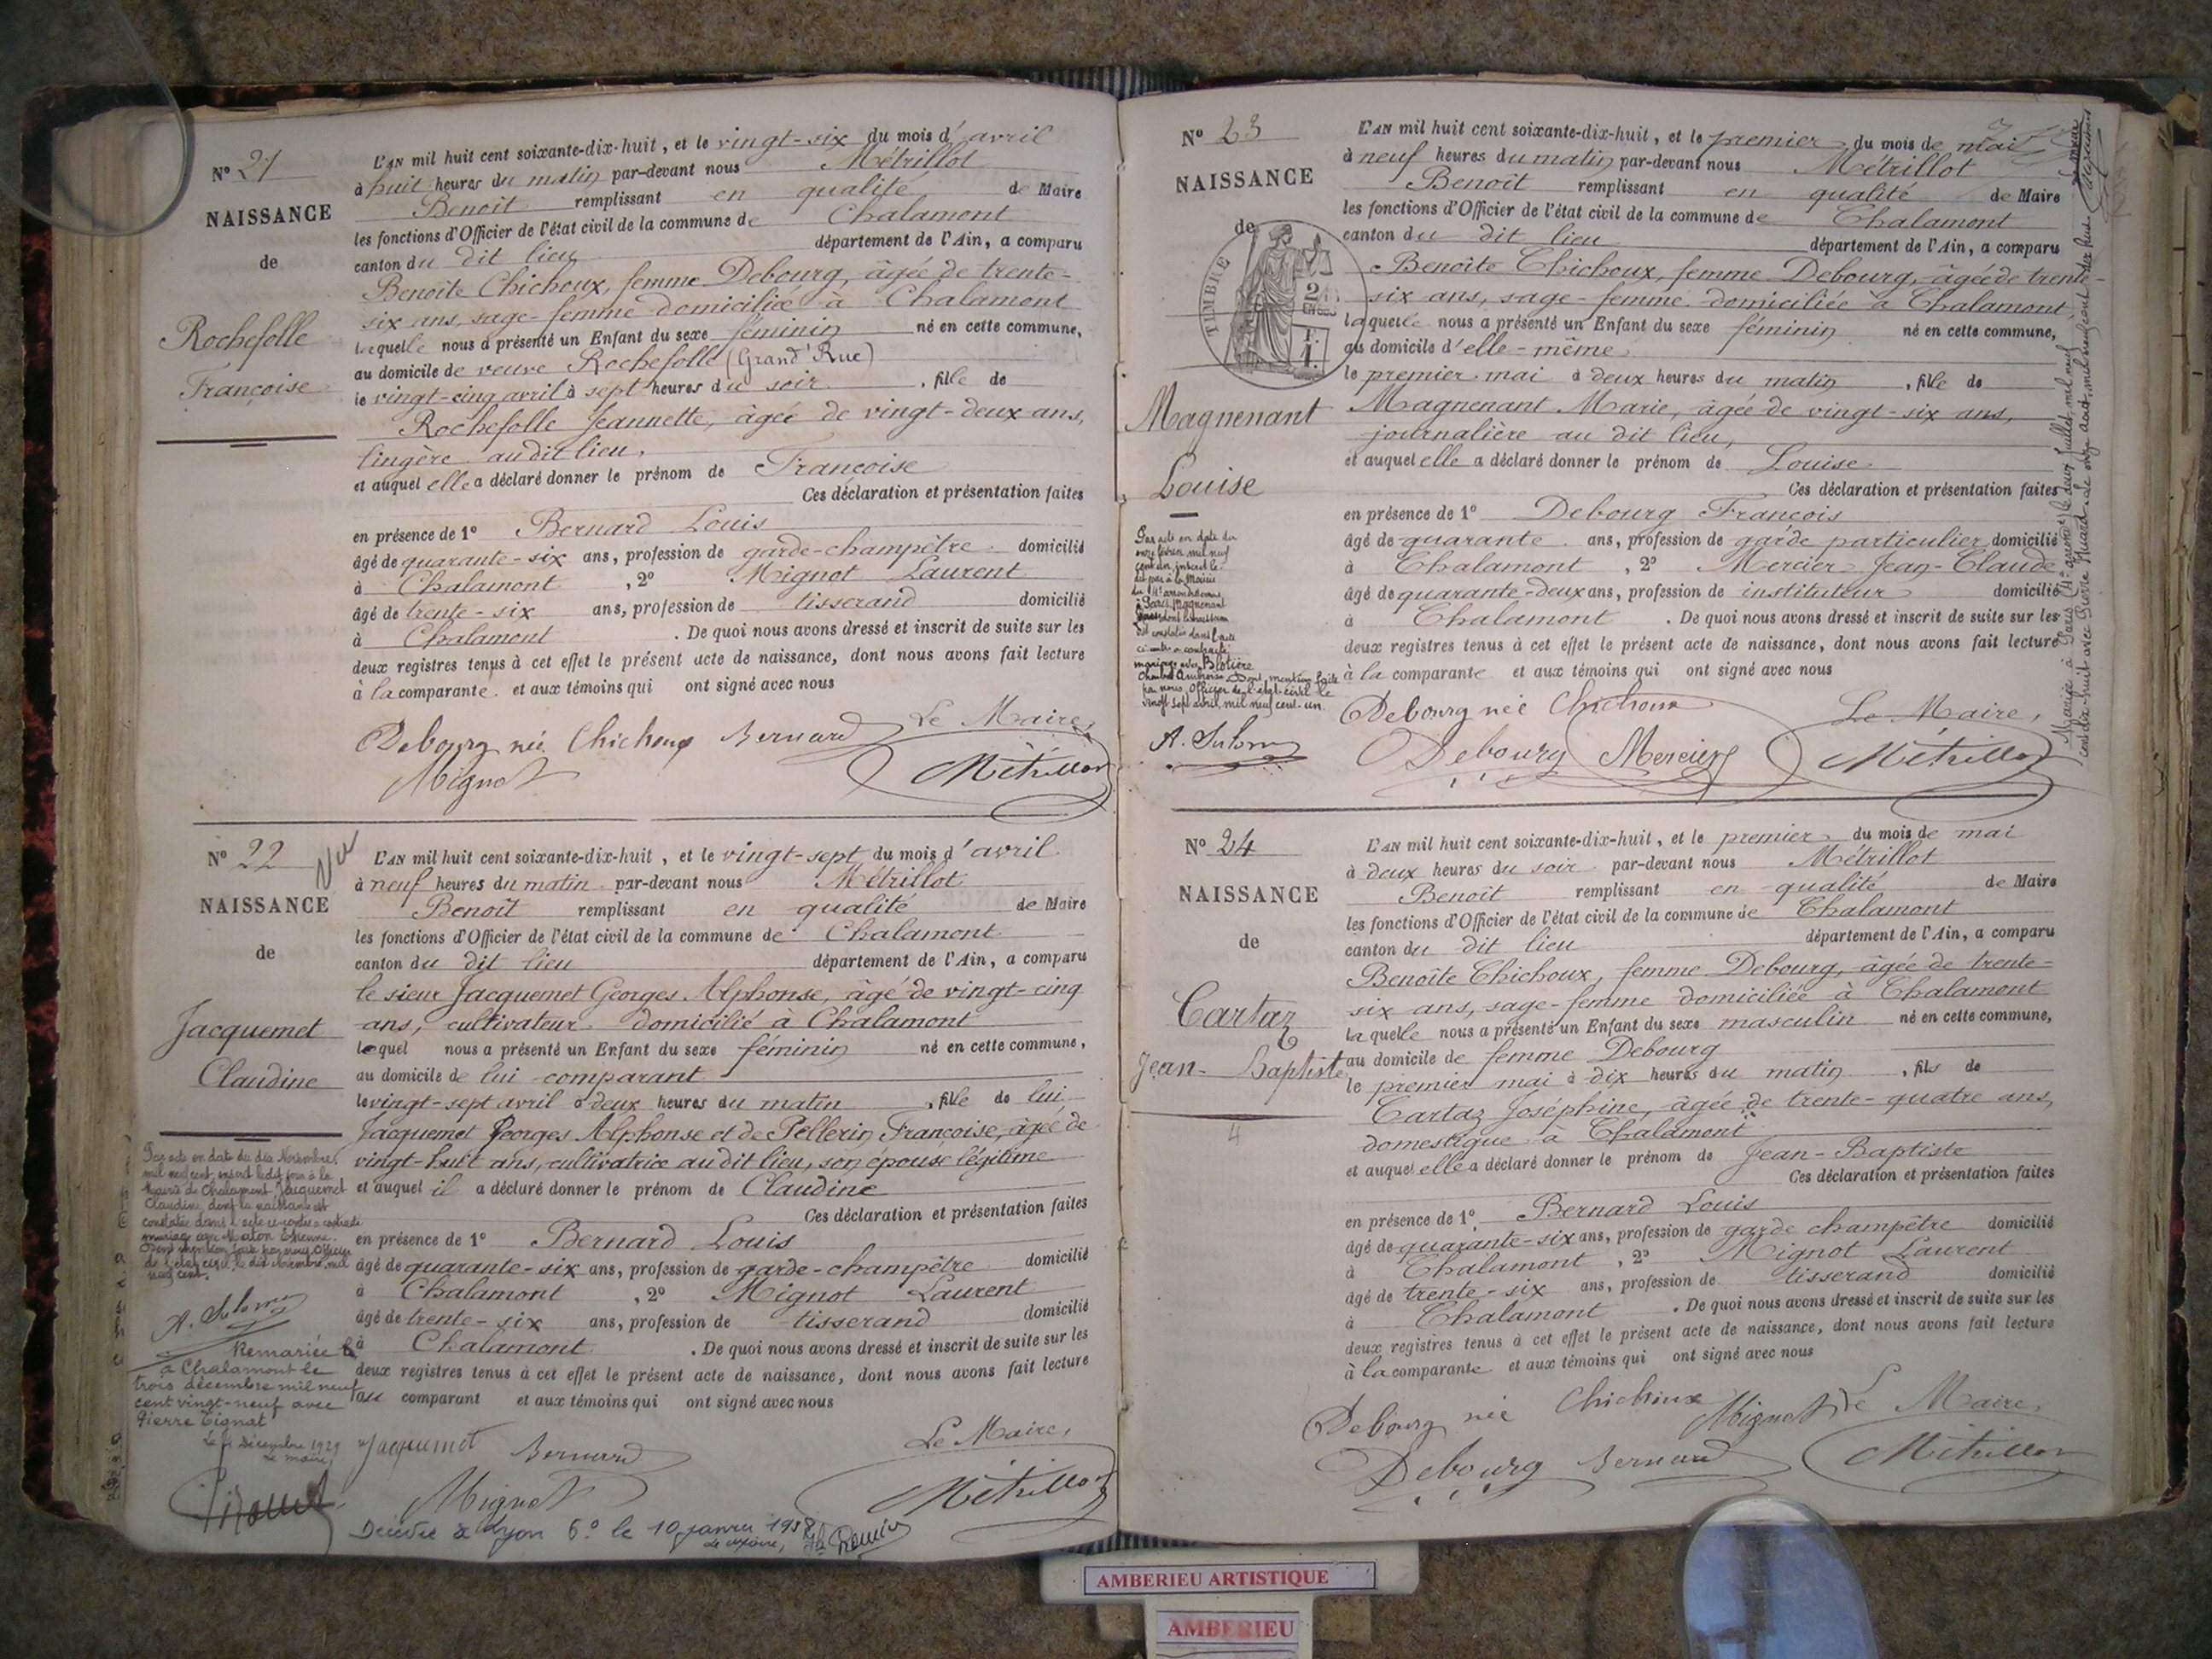 N° 21
NAISSANCE
de
Rochefolle
Françoise
L'AN mil huit cent soixante-dix-huit, et le vingt-six du mois d'avril
à huit heures du matin par-devant nous Métrillot
Benoît remplissant en qualité de Maire
les fonctions d'Officier de l'état civil de la commune de Chalamont
canton du dit lieu département de l'Ain, a comparu
Benoîte Chichoux, femme Debourg, âgée de trente-
six ans, sage-femme domiciliée à Chalamont
laquelle nous a présenté un Enfant du sexe féminin né en cette commune,
au domicile de veuve Rochefolle (Grand'Rue)
le vingt-cinq avril à sept heures du soir, fille de
Rochefolle Jeannette, âgée de vingt-deux ans,
lingère audit lieu,
et auquel elle a déclaré donner le prénom de Françoise
Ces déclaration et présentation faites
en présence de 1° Bernard Louis
âgé de quarante-six ans, profession de garde-champêtre domicilié
à Chalamont, 2° Mignot Laurent
âgé de trente-six ans, profession de tisserand domicilié
à Chalamont. De quoi nous avons dressé et inscrit de suite sur les
deux registres tenus à cet effet le présent acte de naissance, dont nous avons fait lecture
à la comparante et aux témoins qui ont signé avec nous
Debourg née Chichoux Bernard Le Maire,
Mignot Métrillot
N° 22
NAISSANCE
de
Jacquemet
Claudine
Par acte en date du dix Novembre
mil neuf cent, inscrit ledit jour à la
Mairie de Chalamont Jacquemet
Claudine, dont la naissance est
constatée dans l'acte ci-contre a contracté
mariage avec Maton Etienne.
Dont mention faite par nous Officier
de l'état civil, le dix Novembre mil
neuf cent.
Remariée
à Chalamont le
trois décembre mil neuf
cent vingt-neuf avec
Pierre Tignat
Décembre 1929
Le maire,
L'AN mil huit cent soixante-dix-huit, et le vingt-sept du mois d'avril
à neuf heures du matin par-devant nous Métrillot
Benoît remplissant en qualité de Maire
les fonctions d'Officier de l'état civil de la commune de Chalamont
canton du dit lieu département de l'Ain, a comparu
le sieur Jacquemet Georges Alphonse, âgé de vingt-cinq
ans, cultivateur domicilié à Chalamont
lequel nous a présenté un Enfant du sexe féminin né en cette commune,
au domicile de lui comparant
le vingt-sept avril à deux heures du matin, fille de lui
Jacquemet Georges Alphonse et de Pellerin Françoise, âgée de
vingt-huit ans, cultivatrice au dit lieu, son épouse légitime
et auquel il a déclaré donner le prénom de Claudine
Ces déclaration et présentation faites
en présence de 1° Bernard Louis
âgé de quarante-six ans, profession de garde-champêtre domicilié
à Chalamont, 2° Mignot Laurent
âgé de trente-six ans, profession de tisserand domicilié
à Chalamont. De quoi nous avons dressé et inscrit de suite sur les
deux registres tenus à cet effet le présent acte de naissance, dont nous avons fait lecture
au comparant et aux témoins qui ont signé avec nous
Jacquemet Bernard Le Maire,
Mignot Métrillot
Décédée à Lyon 6° le 10 janvier
N° 23
NAISSANCE
de
TIMBRE
Magnenant
Louise
Par acte en date du
onze février mil neuf
cent un, inscrit le
dit jour à la Mairie
du 14e arrondissement
à Paris, Magnenant
Louise dont la naissance
est constatée dans l'acte
ci-contre a contracté
mariage avec Blotière
Dont mention faite
par nous, Officier de l'état-civil le
vingt sept avril mil neuf cent un.
L'AN mil huit cent soixante-dix-huit, et le premier du mois de mai
à neuf heures du matin par-devant nous Métrillot
Benoît remplissant en qualité de Maire
les fonctions d'Officier de l'état civil de la commune de Chalamont
canton du dit lieu département de l'Ain, a comparu
Benoîte Chichoux, femme Debourg, âgée de trente-
six ans, sage-femme domiciliée à Chalamont,
laquelle nous a présenté un Enfant du sexe féminin né en cette commune,
au domicile d'elle-même
le premier mai à deux heures du matin, fille de
Magnenant Marie, âgée de vingt-six ans,
journalière au dit lieu,
et auquel elle a déclaré donner le prénom de Louise
Ces déclaration et présentation faites
en présence de 1° Debourg François
âgé de quarante ans, profession de garde particulier domicilié
à Chalamont, 2° Mercier Jean-Claude
âgé de quarante-deux ans, profession de instituteur domicilié
à Chalamont. De quoi nous avons dressé et inscrit de suite sur les
deux registres tenus à cet effet le présent acte de naissance, dont nous avons fait lecture
à la comparante et aux témoins qui ont signé avec nous
Debourg née Chichoux Le Maire,
Debourg Mercier Métrillot
N° 24
NAISSANCE
de
Cartaz
Jean-Baptiste
4
L'AN mil huit cent soixante-dix-huit, et le premier du mois de mai
à deux heures du soir par-devant nous Métrillot
Benoît remplissant en qualité de Maire
les fonctions d'Officier de l'état civil de la commune de Chalamont
canton du dit lieu département de l'Ain, a comparu
Benoîte Chichoux, femme Debourg, âgée de trente-
six ans, sage-femme domiciliée à Chalamont
laquelle nous a présenté un Enfant du sexe masculin né en cette commune,
au domicile de femme Debourg
le premier mai à dix heures du matin, fils de
Cartaz Joséphine, âgée de trente-quatre ans,
domestique à Chalamont
et auquel elle a déclaré donner le prénom de Jean-Baptiste
Ces déclaration et présentation faites
en présence de 1° Bernard Louis
âgé de quarante-six ans, profession de garde champêtre domicilié
à Chalamont, 2° Mignot Laurent
âgé de trente-six ans, profession de tisserand domicilié
à Chalamont. De quoi nous avons dressé et inscrit de suite sur les
deux registres tenus à cet effet le présent acte de naissance, dont nous avons fait lecture
à la comparante et aux témoins qui ont signé avec nous
Debourg née Chichoux Mignot Le Maire,
Debourg Bernard Métrillot
AMBERIEU ARTISTIQUE
AMBERIEU